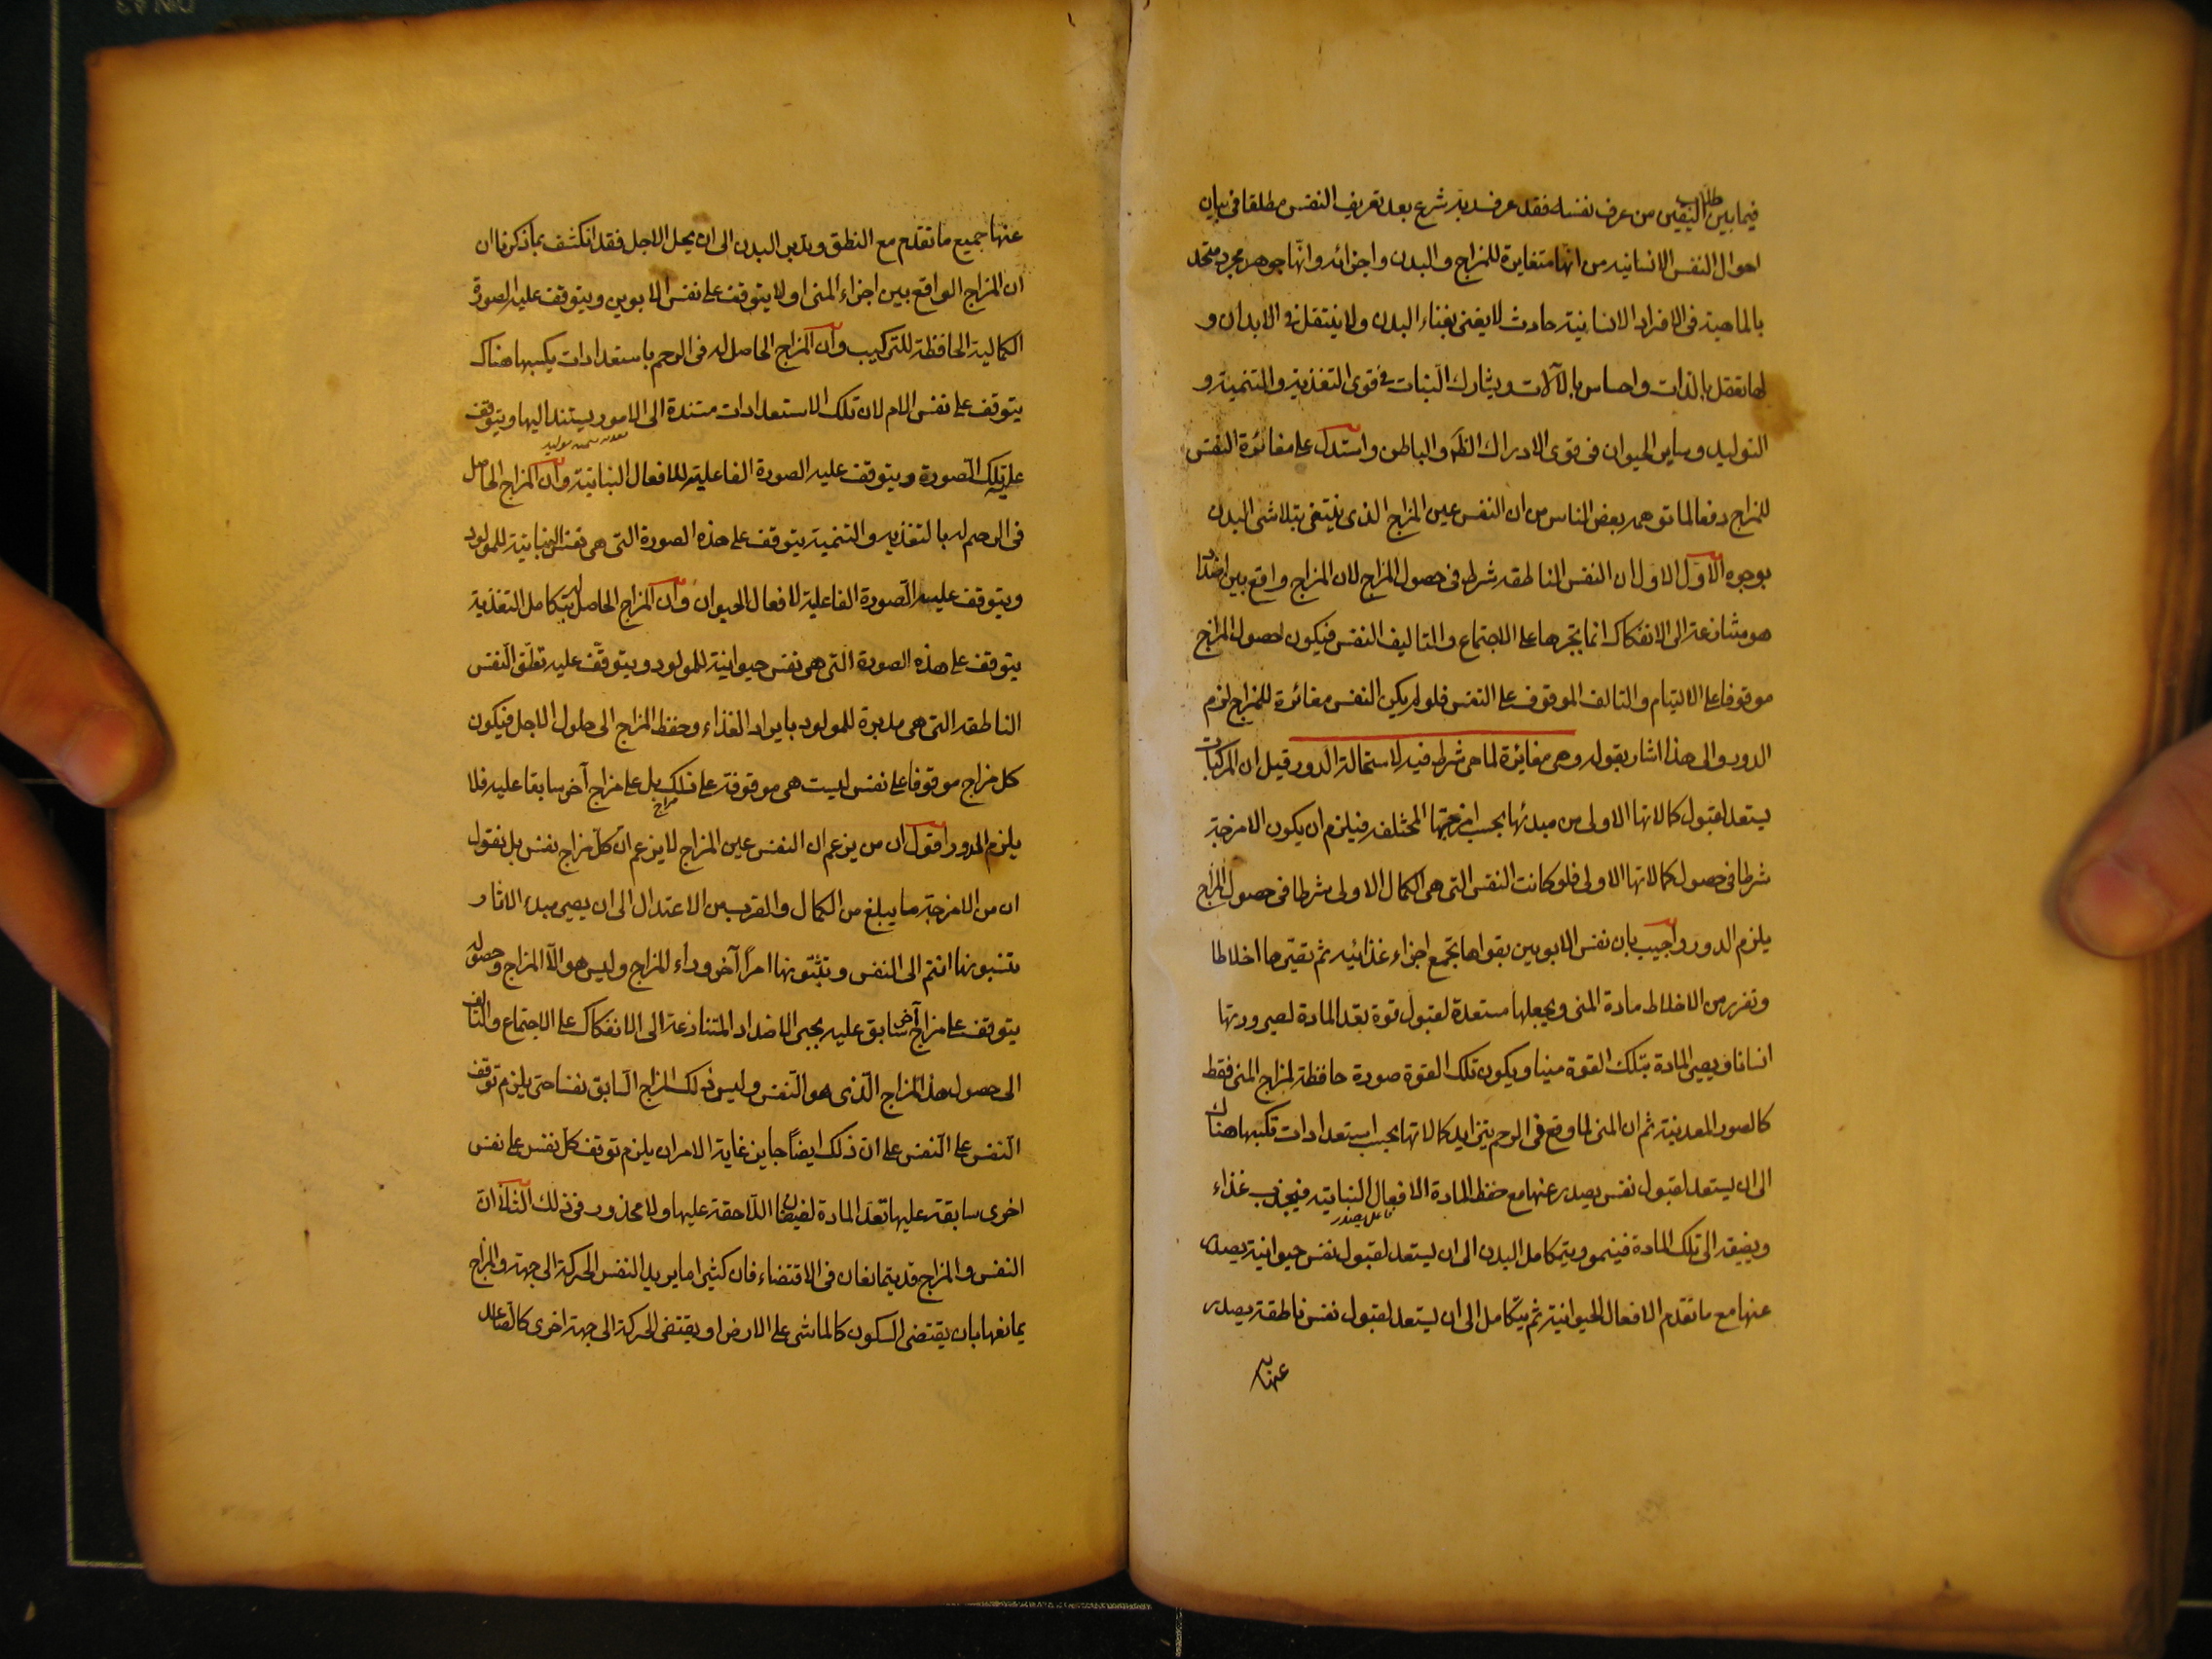 فيما بين طلاب اليقين من عرف نفسه فقد عرف ربه شرع بعد تعريف النفس مطلقا فى بيان
احوال النفس الانسانيه من انّها متغايرة للمزاج و البدن و اجزائه و انّها جوهر مجرد متحد
بالماهية فى الافراد الانسانية حادث لا يفنى بفناء البدن و لا ينتقل فى الابدان و
لها تعقل بالذات و احساس بالآلات و يشارك النبات فى قوى التغذية و التنمية و
التوليد و ساير الحيوان فى قوى الادراك الظ و الباطن و استدل على مغائرة النفس
للمزاج دفعا لما توهمه بعض الناس من ان النفس عين المزاج الذى ينتفى بتلاشى البدن
بوجوه الاوّل الاول ان النفس الناطقه شرط فى حصول المزاج لان المزاج واقع بين اضداد
هو متنازعة الى الانفكاك انما تجبرها على الاجتماع و التاليف النفس فيكون حصول المزاج
موقوفا على الالتيام و التالف الموقوف على النفس فلو لم يكن النفس مغائرة للمزاج لزم
الدور و الى هذا اشار بقوله و هى مغايرة لما هى شرط فيه لاستحالة الدور قيل ان المركبات
يستعد لقبول كمالاتها الاولى من مبدئها بحسب امزجتها المختلفه فيلزم ان يكون الامزجة
شرطا فى حصول كمالاتها الاولى فلو كانت النفس التى هى الكمال الاولى شرطا فى حصول المزاج
يلزم الدور و اجيب بان نفس الابوين بقواها تجمع اجزاء غذائيه ثم تصيّرها اخلاطا
و تفرز من الاخلاط مادة المنى و يجعلها مستعدة لقبول قوة بعد المادة لصيرورتها
انسانا و يصير المادة بتلك القوة منيا و يكون تلك القوة صورة حافظة لمزاج المنى فقط
كالصور المعدنية ثم ان المنى لما وقع فى الرحم يتزايد كمالاتها بحسب استعدادات تكسبها هناك
الى ان يستعد لقبول نفس يصدر عنها مع حفظ المادة الافعال النباتيه فيجذب غذاء
و يضيفه الى تلك المادة فينمو و يتكامل البدن الى ان يستعد لقبول نفس حيوانية يصدر
عنها مع ما تقدم الافعال الحيوانية ثم يتكامل الى ان يستعد لقبول نفس ناطقة يصدر
عنها
عنها جميع ما تقدم مع النطق و تدبر البدن الى ان يحل الاجل فقد انكشف بما ذكرنا ان
ان المزاج الواقع بين اجزاء المنى اولا يتوقف على نفس الابوين و يتوقف عليه الصورة
الكمالية الحافظة للتركيب و ان المزاج الحاصل له فى الرحم باستعدادات يكسبها هناك
يتوقف على نفس الام لان تلك الاستعدادات مستندة الى الامور يستند اليها و يتوقف
على تلك الصورة و يتوقف عليه الصورة الفاعلية للافعال النباتية و ان المزاج الحاصل
فى الرحم له بالتغذيه و التنمية يتوقف على هذه الصورة التى هى نفس النباتية للمولود
و يتوقف عليه الصورة الفاعلية لافعال الحيوان و ان المزاج الحاصل له بتكامل التغذية
يتوقف على هذه الصورة التى هى نفس حيوانية للمولود و يتوقّف عليه تعلّق النفس
الناطقه التى هى مدبرة للمولود بايراد الغذاء و حفظ المزاج الى حلول الاجل فيكون
كل مزاج موقوفا على نفس ليست هى موقوفة على ذلك المزاج بل على مزاج آخر سابقا عليه فلا
يلزم الدور اقول ان من يزعم ان النفس عين المزاج لا يزعم انّ كلّ مزاج نفس بل نقول
ان من الامزجة ما يبلغ من الكمال و القرب من الاعتدال الى ان يصير مبدء الآثار
تنسبونها انتم الى النفس و تثبتونها امراً آخر وراء المزاج و ليس هو الّا المزاج و حصوله
يتوقف على مزاج آخر سابق عليه يجبر الاضداد المتنازعة الى الانفكاك على الاجتماع و التالف
الى حصول هذا المزاج الّذى هو النّفس و ليس ذلك المزاج السّابق نفسا حتى يلزم توقف
النّفس على النّفس على انّ ذلك ايضاً جايز غاية الامر ان يلزم توقف كلّ نفس على نفس
اخرى سابقة عليها تعدّ المادة لفيضان اللاحقة عليها و لا محذور فى ذلك الثانى انّ
النفس و المزاج قد يتمانعان فى الاقتضاء فان كثيرا ما يريد النفس الحركة الى جهة و المزاج
يمانعها بان يقتضى السكون كالماشى على الارض او يقتضى الحركة الى جهة اخرى كالصاعد